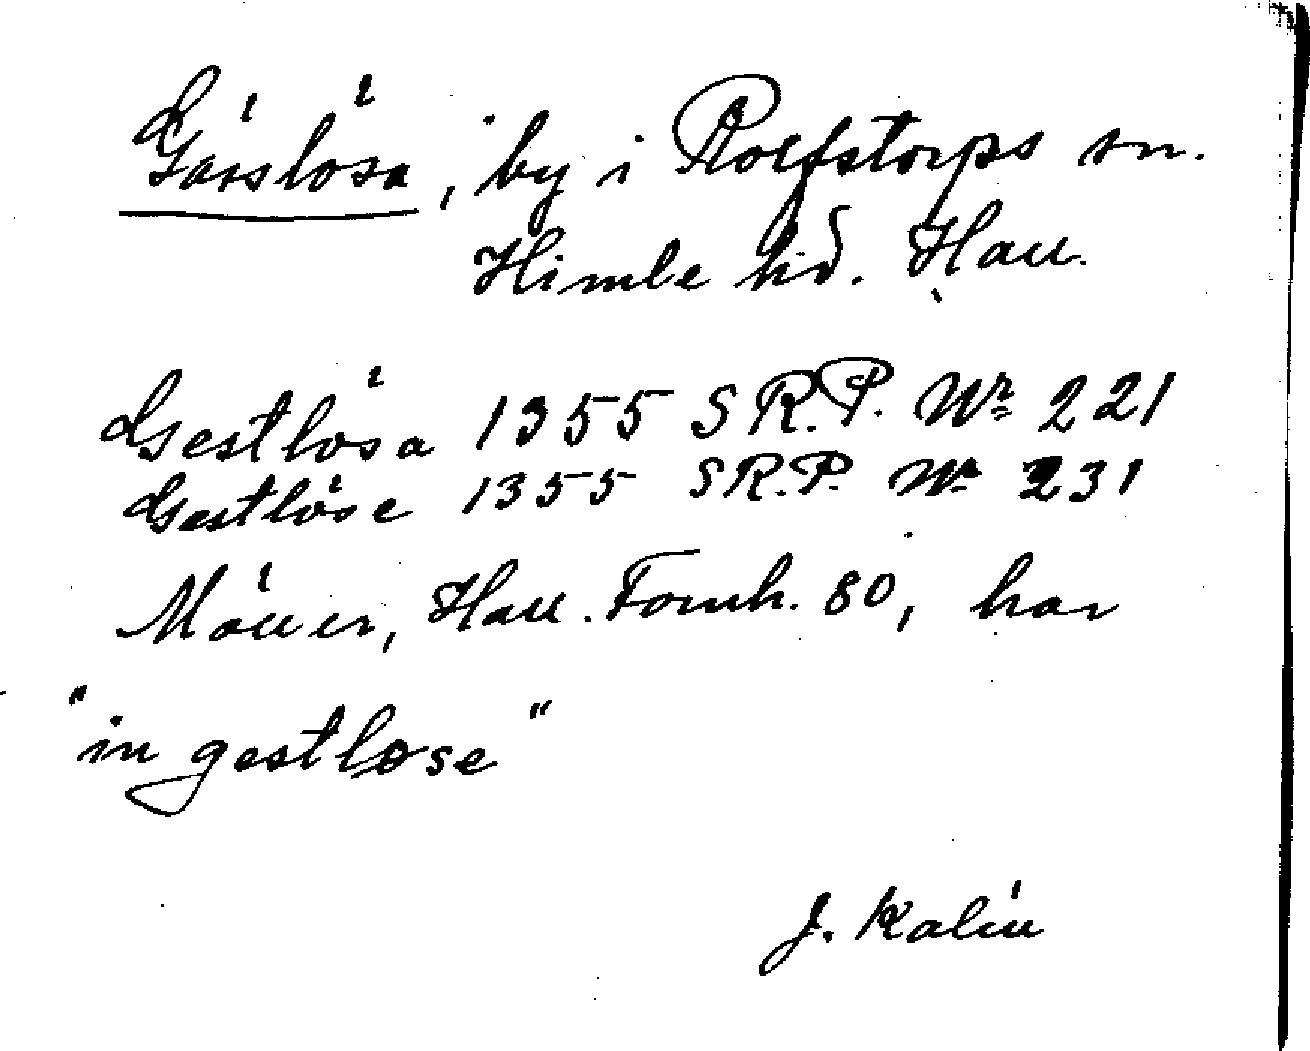 Gässlösa, by i Rolfstorps sn.
Himle hd. Hall.
Gestlösa 1355 SR.P. Nr 221
Gestlöse 1355 SR.P. Nr 231
Möller, Hall. Fornh. 80, har
"in gestlose"
J. Kalén